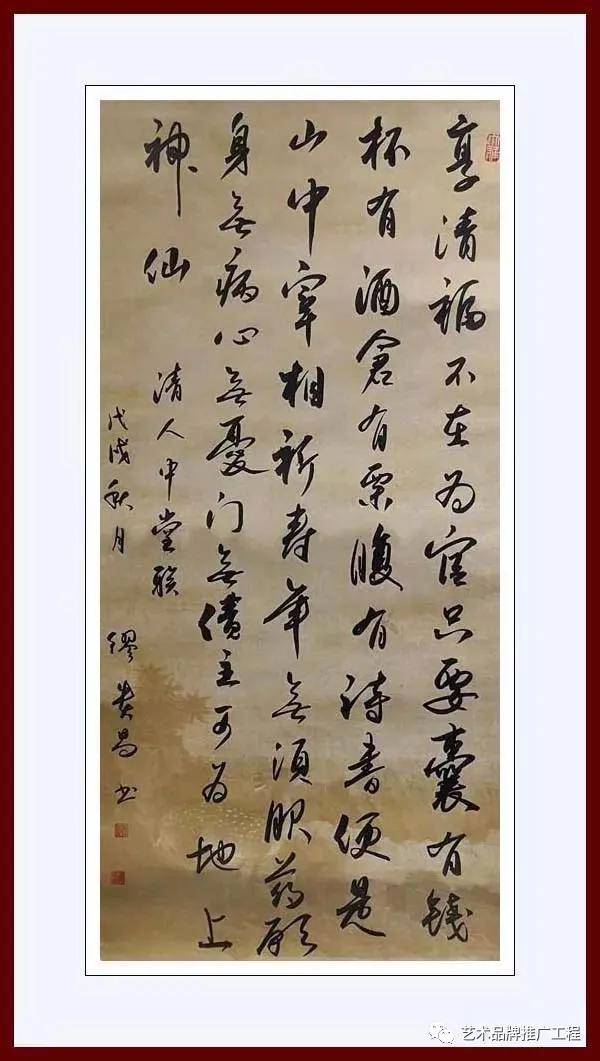 享清福不在为官只要囊有錢
杯有酒倉有粟腹有诗書便是
山中宰相祈寿年無须服药願
身無病心無憂门無债主可为地上
神仙
清人中堂联
戊戌秋月 缪贵昌书
艺术品牌推广工程